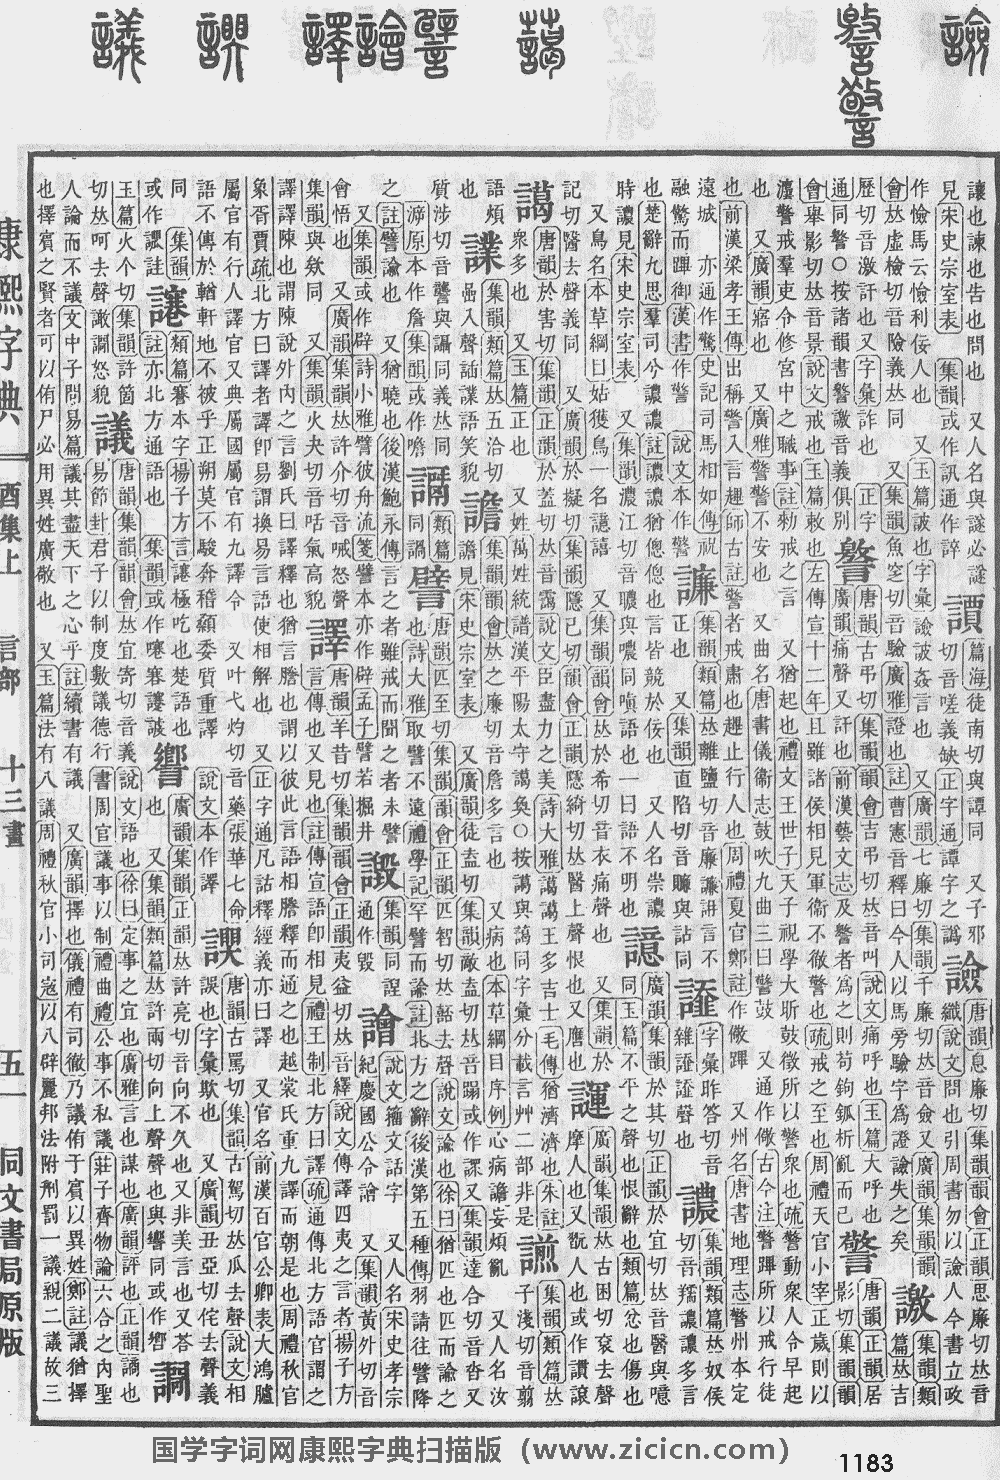 譣 警 警 䓈 譬 譮 譯 䜁 議
讓也諫也告也問也 又人名與
見宋史宗室表 集韻或作訊通作誶
篇海徒南切與譚同 又子邪
切音嗟義缺正字通譚字之譌
譣
唐韻息廉切集韻韻會正韻思廉切𠀤音
纖說文問也引周書勿以譣人今書立政
作憸馬云憸利佞人也 又玉篇詖也字彙譣詖姦言也 又廣韻七廉切集韻千廉切𠀤音僉又廣韻集韻
會𠀤虛檢切音險義𠀤同 又集韻魚窆切音驗廣雅證也註曹憲音釋曰今人以馬旁驗字爲證譣失之矣
譤
集韻類篇𠀤吉
歷切音激訐也又字彙詐也 正字
通同警○按諸韻書警譤音義俱別
唐韻古弔切集韻韻會吉弔切𠀤音叫說文痛呼也玉篇大呼也
廣韻痛聲又訐也前漢藝文志及警者爲之則苟鉤鈲析亂而已
警
唐韻正韻居影切集韻韻
會舉影切𠀤音景說文戒也玉篇敕也左傳宣十二年且雖諸侯相見軍衞不徹警也疏戒之至也周禮天官小宰正歲則以
灋警戒羣吏令修宮中之職事註勑戒之言 又猶起也禮文王世子天子視學大昕鼓徵所以警衆也疏警動衆人令早起
也 又廣韻寤也 又廣雅警警不安也 又曲名唐書儀衞志鼓吹九曲三曰警鼓 又通作儆古今注警蹕所以戒行徒
也前漢梁孝王傳出稱警入言䟆師古註警者戒肅也䟆止行人也周禮夏官鄭註作儆蹕 又州名唐書地理志警州本定
遠城 亦通作驚史記司馬相如傳祝
融驚而蹕御漢書作警 說文本作警
譧
集韻類篇𠀤離鹽切音廉譧詽言不
正也 又集韻直陷切音賺與詀同
字彙昨答切音
雜誰誰聲也
譨
集韻類篇𠀤奴侯
切音羺譨譨多言
也楚辭九思羣司兮譨譨註譨譨猶偬偬也言皆競於佞也 又人名崇譨
時譨見宋史宗室表 又集韻濃江切音䁸與噥同嗔語也一曰語不明也
譩
廣韻集韻於其切正韻於宜切𠀤音醫與噫
同玉篇不平之聲也恨辭也類篇忿也傷也
又鳥名本草綱目姑獲鳥一名譩譆 又集韻韻會𠀤於希切音衣痛聲也 又集韻於
記切醫去聲義同 又廣韻於擬切集韻隱已切韻會正韻隱綺切𠀤醫上聲恨也又譍也
廣韻集韻𠀤古困切袞去聲
摩人也又翫人也或作讃譺
譪
唐韻於害切集韻正韻於蓋切𠀤音靄說文臣盡力之美詩大雅譪譪王多吉士毛傳猶濟濟也朱註
衆多也 又玉篇正也 又姓萬姓統譜漢平陽太守譪奐○按譪與藹同字彙分載言艸二部非是
集韻類篇𠀤
子淺切音翦
語煩
也
集韻類篇𠀤五洽切
喦入聲誧諜語笑貌
譫
集韻韻會𠀤之廉切音詹多言也 又病也本草綱目序例心病譫妄煩亂 又人名汝
譫見宋史宗室表 又廣韻徒盍切集韻敵盍切𠀤音蹋或作謵又集韻達合切音沓又
質涉切音讋與讘同義𠀤同
源原本作詹集韻或作噡
類篇
同謁
譬
唐韻匹至切集韻韻會正韻匹智切𠀤紕去聲說文諭也徐曰猶匹也匹而諭之
也詩大雅取譬不遠禮學記罕譬而諭註北方之辭後漢第五種傳羽請往譬降
之註譬諭也 又猶曉也後漢鮑永傳言之者雖戒而聞之者未譬
又集韻或作辟詩小雅譬彼舟流箋譬本亦作辟孟子譬若掘井
譭
集韻同䛼
通作毀
譮
說文籀文話字 又人名宋史孝宗
紀慶國公令譮 又集韻黃外切音
會悟也 又廣韻集韻𠀤許介切音喊怒聲
集韻與欸同 又集韻火夬切音咶氣高貌
譯
唐韻羊昔切集韻韻會正韻夷益切𠀤音繹說文傳譯四夷之言者揚子方
言傳也又見也註傳宣語卽相見禮王制北方曰譯疏通傳北方語官謂之
譯譯陳也謂陳說外內之言劉氏曰譯釋也猶言謄也謂以彼此言語相謄釋而通之也越裳氏重九譯而朝是也周禮秋官
象胥賈疏北方曰譯者譯卽易謂換易言語使相解也 又正字通凡詁釋經義亦曰譯 又官名前漢百官公卿表大鴻臚
屬官有行人譯官又典屬國屬官有九譯令 又叶弋灼切音藥張華七命
語不傳於輶軒地不被乎正朔莫不駿奔稽顙委質重譯 說文本作譯
䜁
唐韻古罵切集韻古駕切𠀤瓜去聲說文相
誤也字彙欺也 又廣韻丑亞切侘去聲義
同 集韻
或作詿
類篇謇本字揚子方言讓極吃也楚語也
註亦北方通語也 集韻或作𡄗謇蹇諓
響
廣韻集韻正韻𠀤許亮切音向不久也又非美言也又荅
也 又集韻類篇𠀤許兩切向上聲聲也與響同或作嚮
玉篇火个切集韻許箇
切𠀤呵去聲譀謿怒貌
議
唐韻集韻韻會𠀤宜寄切音義說文語也徐曰定事之宜也廣雅言也謀也廣韻評也正韻謫也
易節卦君子以制度數議德行書周官議事以制禮曲禮公事不私議莊子齊物論六合之內聖
人論而不議文中子問易篇議其盡天下之心乎註續書有議 又廣韻擇也儀禮有司徹乃議侑于賓以異姓鄭註議猶擇
也擇賓之賢者可以侑尸必用異姓廣敬也 又玉篇法有八議周禮秋官小司寇以八辟麗邦法附刑罰一議親二議故三
康熙字典 酉集上 言部 十三畫 五一 同文書局原版
国学字词网康熙字典扫描版（www.zicicn.com）
1183